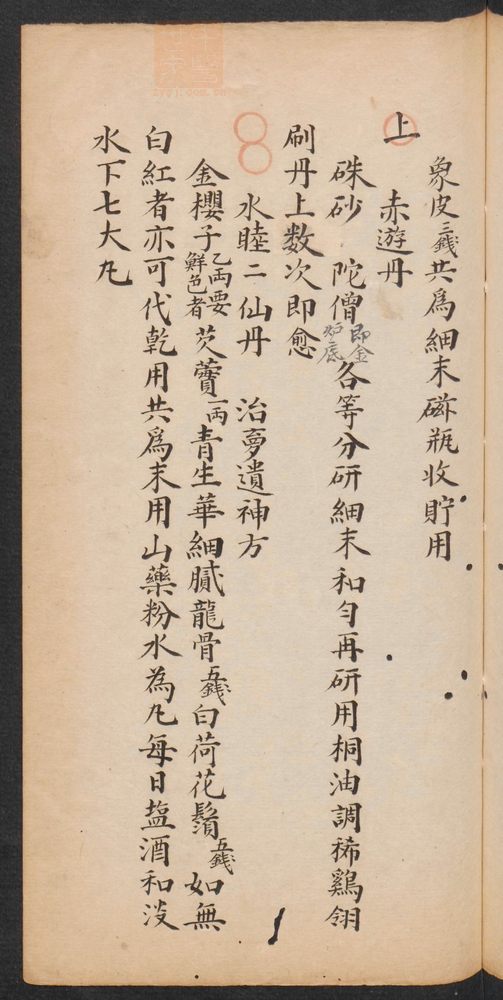 象皮三錢共爲細末磁瓶收貯用
上
赤遊丹
硃砂 陀僧即金炉底各等分研細末和勻再研用桐油調稀鷄翎
刷丹上数次即愈
水睦二仙丹 治夢遺神方
金櫻子乙兩要鮮色者芡實一兩青生華細膩龍骨五錢白荷花鬚五錢如無
白紅者亦可代乾用共爲末用山藥粉水為凢每日塩酒和沒
水下七大凢